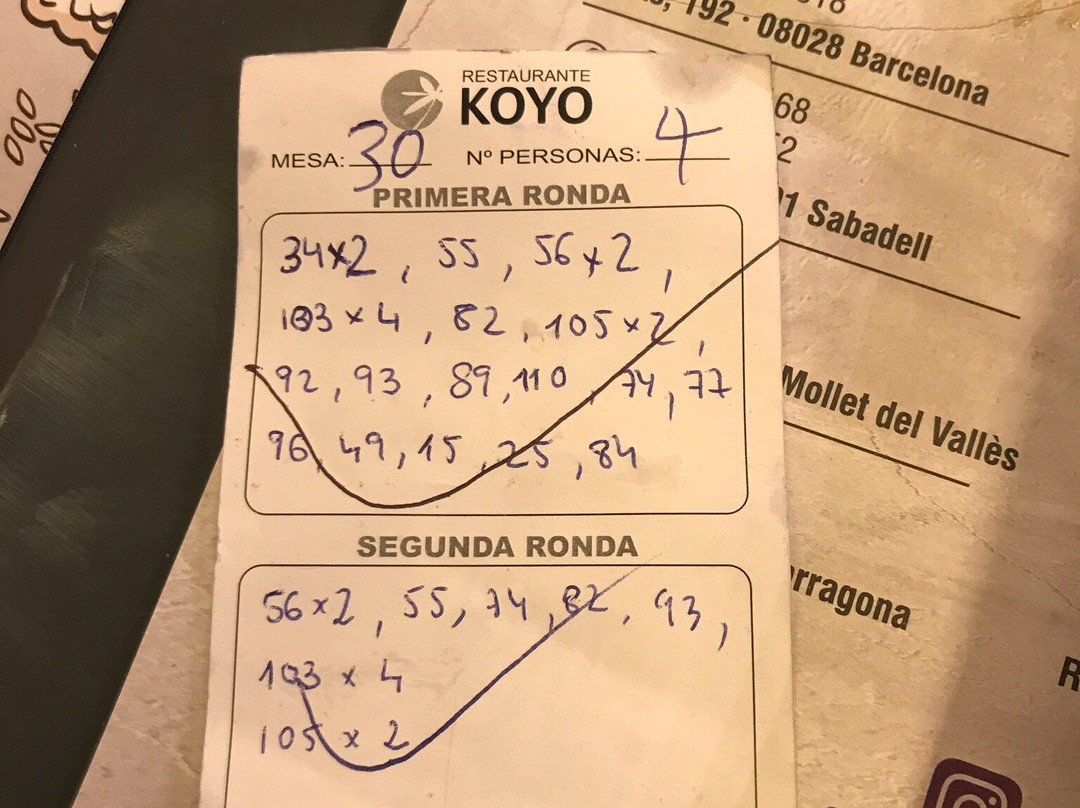 RESTAURANTE
KOYO
MESA: 30 Nº PERSONAS: 4
PRIMERA RONDA
34x2, 55, 56x2,
103 x 4, 82, 105 x 2,
92, 93, 89, 110, 74, 77
96, 49, 15, 25, 84
SEGUNDA RONDA
56x2, 55, 74, 82, 93,
103 x 4
105 x 2
192 · 08028 Barcelona
68
2
Sabadell
Mollet del Vallès
rragona
R